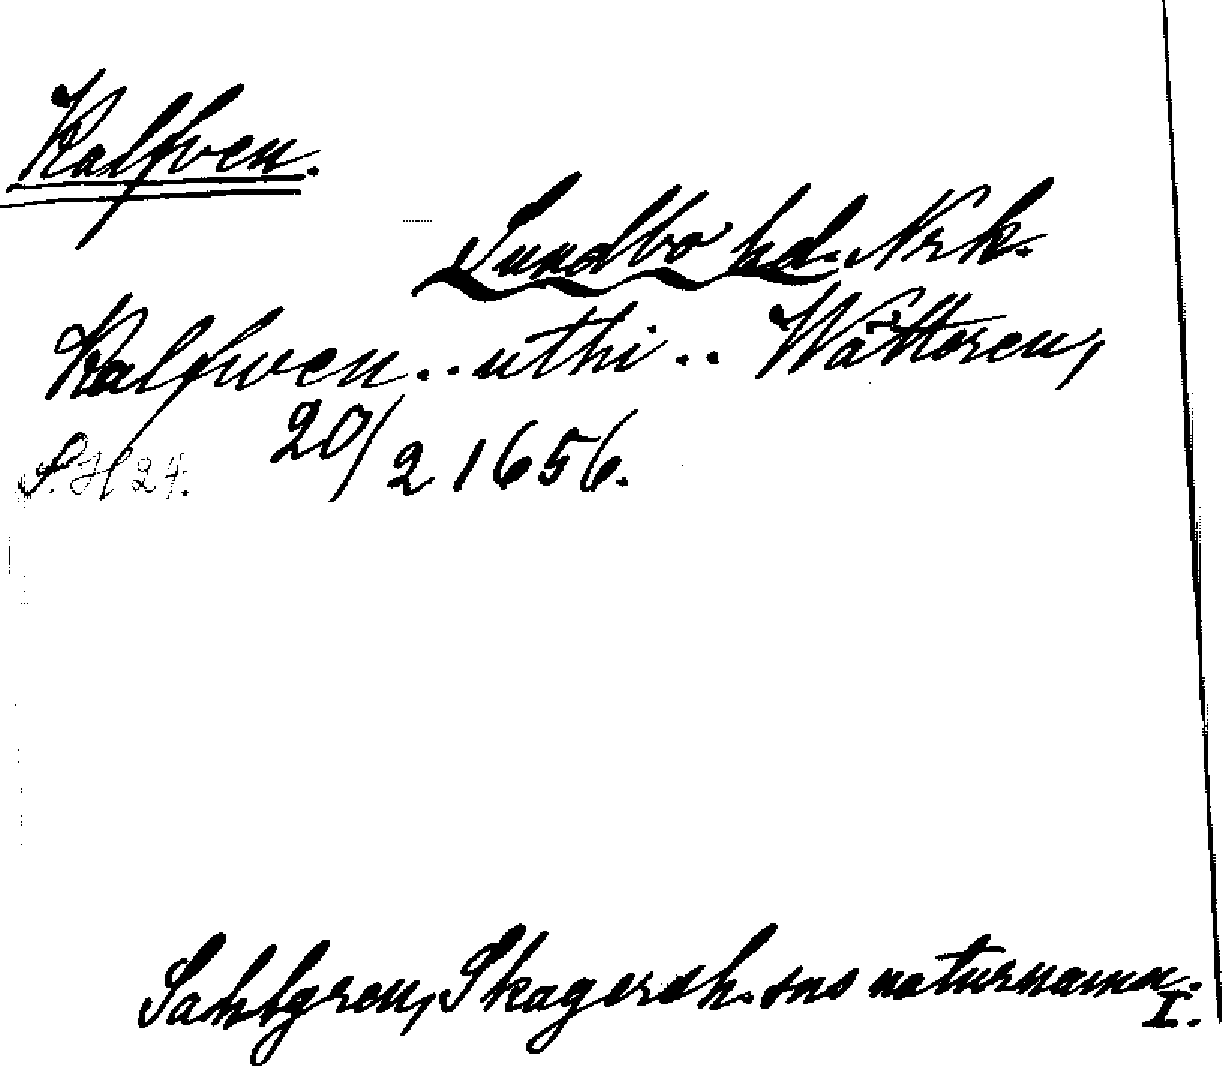 Kalfven.
Sundbo hd. Nrk.
Kalfwen.. uthi.. Wättoren,
20/2 1656.
S. H 24.
Sahlgren, Skagersh. sns naturnamn.
I.